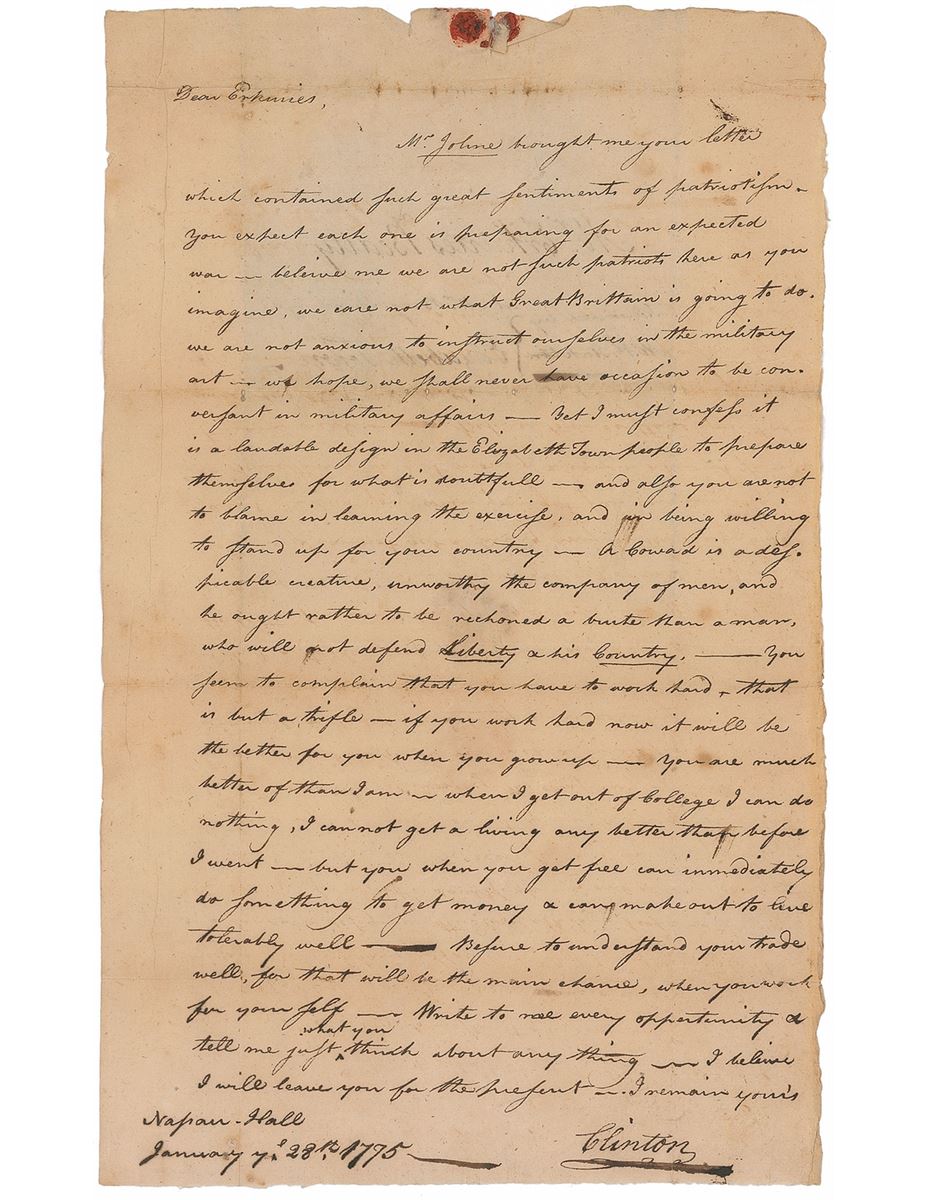 Dear Erkuries,
Mr. Joline brought me your letter
which contained such great sentiments of patriotism.
You expect each one is preparing for an expected
war — beleive me we are not such patriots here as you
imagine, we care not what Great Brittain is going to do.
we are not anxious to instruct ourselves in the military
art — we hope, we shall never have occasion to be con-
versant in military affairs — Yet I must confess it
is a laudable design in the Elizabeth Town people to prepare
themselves for what is doubtfull — and also you are not
to blame in learning the exercise, and in being willing
to stand up for your country — A Coward is a des-
picable creature, unworthy the company of men, and
he ought rather to be reckoned a brute than a man,
who will not defend Liberty & his Country. — You
seem to complain that you have to work hard, that
is but a trifle — if you work hard now it will be
the better for you when you grow up — You are much
better of than I am — when I get out of College I can do
nothing, I can not get a living any better than before
I went — but you when you get free can immediately
do something to get money & can make out to live
tolerably well — Besure to understand your trade
well, for that will be the main chance, when you work
for your self — Write to me every opportunity &
tell me just what you think about any thing — I beleive
I will leave you for the present — I remain yours
Nassau-Hall
January ye. 28th. 1795 — Clinton